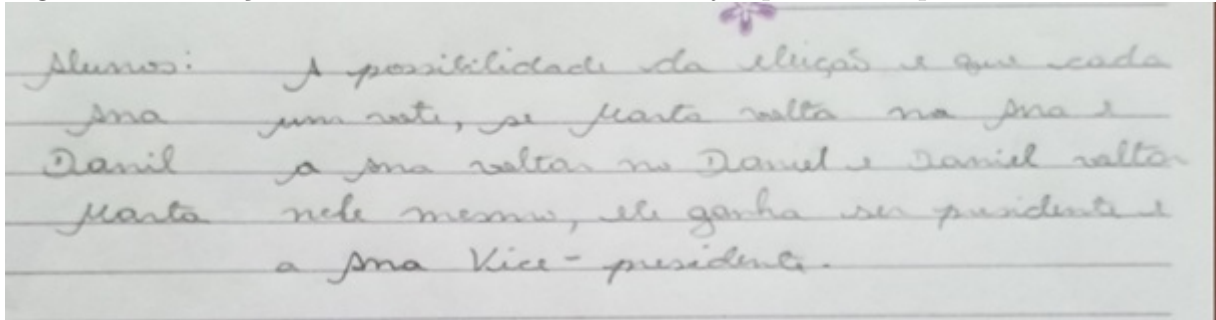 Alunos: A possibilidade da eleição e que cada
Ana um vote, se Marta volta na Ana e
Danil a Ana voltar no Daniel e Daniel voltar
Marta nele mesmo, ele ganha ser presidente e
a Ana Vice-presidente.